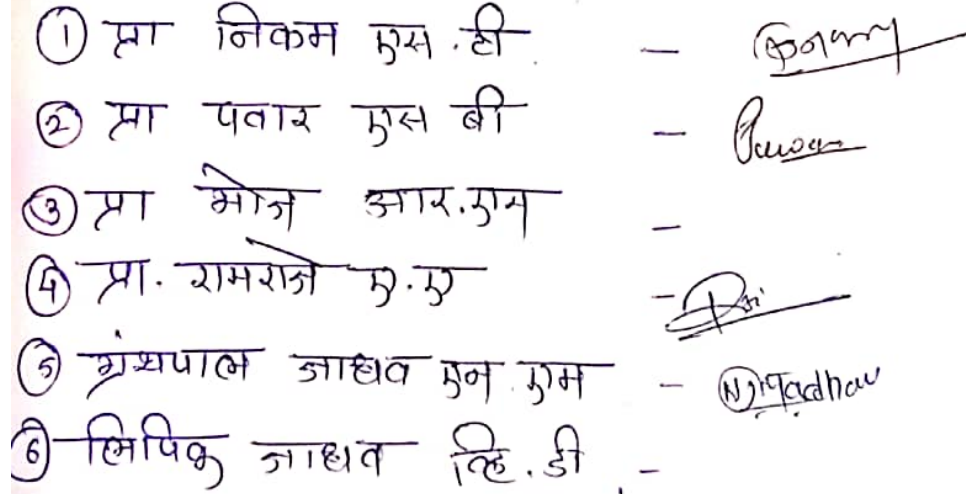 ① प्रा निकम एस.टी -
② प्रा पवार एस बी - Pawar
③ प्रा भोज आर.एन -
④ प्रा. रामराजे ए.ए -
⑤ ग्रंथपाल जाधव एन.एम - N.Jadhav
⑥ लिपिक जाधव व्हि.डी -